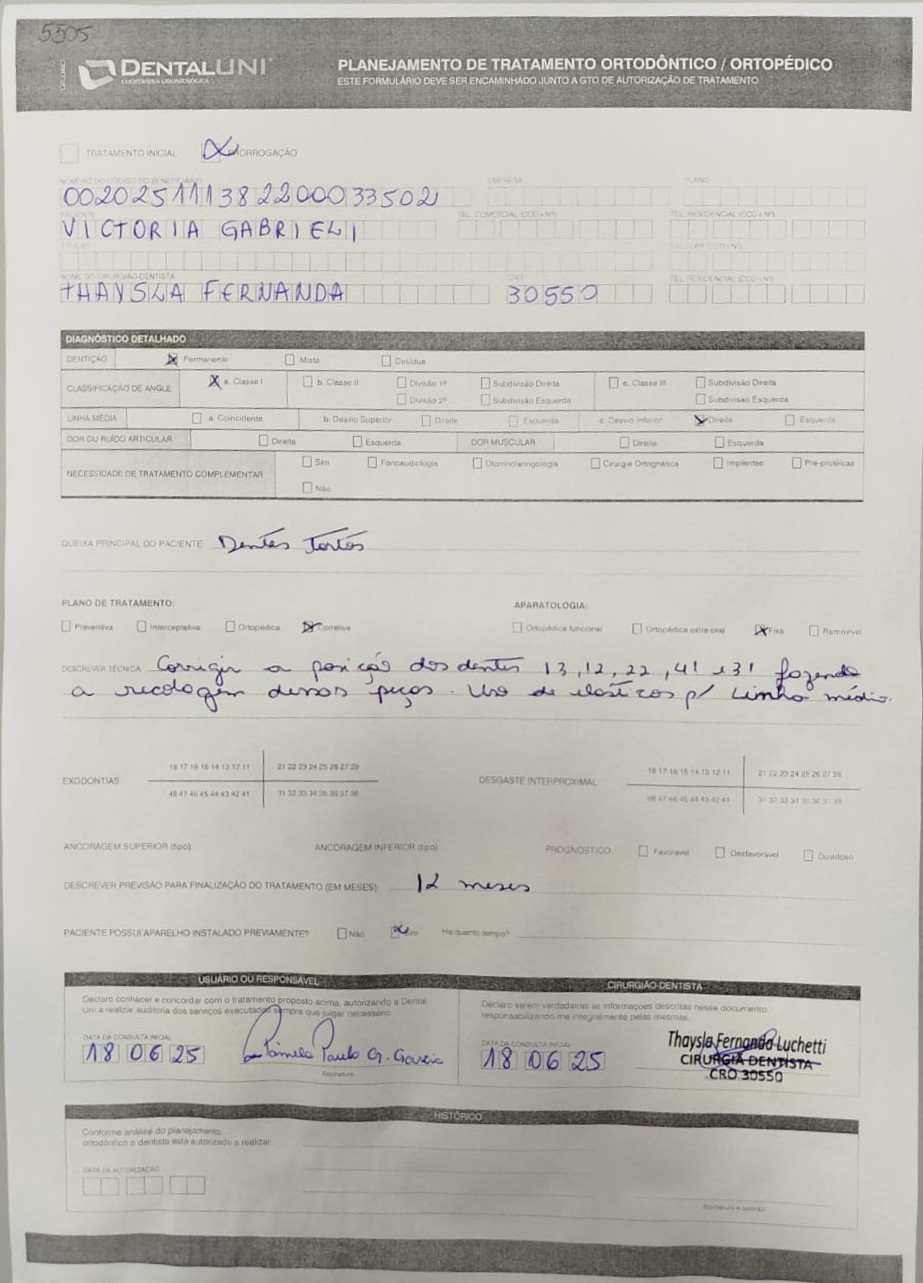 5505
DENTALUNI
COOPERATIVA ODONTOLÓGICA
PLANEJAMENTO DE TRATAMENTO ORTODÔNTICO / ORTOPÉDICO
ESTE FORMULÁRIO DEVE SER ENCAMINHADO JUNTO A GTO DE AUTORIZAÇÃO DE TRATAMENTO
TRATAMENTO INICIAL X PRORROGAÇÃO
NÚMERO DO CÓDIGO DO BENEFICIÁRIO EMPRESA PLANO
0020251113822000033502
PACIENTE TEL. COMERCIAL (DDD + Nº) TEL. RESIDENCIAL (DDD + Nº)
VICTORIA GABRIELI
TITULAR CELULAR (DDD + Nº)
NOME DO CIRURGIÃO-DENTISTA CRO TEL. RESIDENCIAL (DDD + Nº)
THAYSLA FERNANDA 30550
DIAGNÓSTICO DETALHADO
DENTIÇÃO X Permanente Mista Decídua
CLASSIFICAÇÃO DE ANGLE X a. Classe I b. Classe II Divisão 1ª Subdivisão Direita c. Classe III Subdivisão Direita
Divisão 2ª Subdivisão Esquerda Subdivisão Esquerda
LINHA MÉDIA a. Coincidente b. Desvio Superior Direita Esquerda c. Desvio Inferior X Direita Esquerda
DOR OU RUÍDO ARTICULAR Direita Esquerda DOR MUSCULAR Direita Esquerda
NECESSIDADE DE TRATAMENTO COMPLEMENTAR Sim Fonoaudiologia Otorrinolaringologia Cirurgia Ortognática Implantes Pré-protéticas
Não
QUEIXA PRINCIPAL DO PACIENTE Dentes Tortos
PLANO DE TRATAMENTO: APARATOLOGIA:
Preventiva Interceptativa Ortopédica X Corretiva Ortopédica funcional Ortopédica extra oral X Fixa Removível
DESCREVER TÉCNICA Corrigir a posição dos dentes 13, 12, 22, 41 e 31 fazendo
a recolagem dessas peças. Uso de elásticos p/ Linha média.
EXODONTIAS: 18 17 16 15 14 13 12 11 21 22 23 24 25 26 27 28 DESGASTE INTERPROXIMAL 18 17 16 15 14 13 12 11 21 22 23 24 25 26 27 28
48 47 46 45 44 43 42 41 31 32 33 34 35 36 37 38 48 47 46 45 44 43 42 41 31 32 33 34 35 36 37 38
ANCORAGEM SUPERIOR (tipo) ANCORAGEM INFERIOR (tipo) PROGNÓSTICO Favorável Desfavorável Duvidoso
DESCREVER PREVISÃO PARA FINALIZAÇÃO DO TRATAMENTO (EM MESES) 12 meses
PACIENTE POSSUI APARELHO INSTALADO PREVIAMENTE? Não X Sim Há quanto tempo?
USUÁRIO OU RESPONSÁVEL CIRURGIÃO-DENTISTA
Declaro conhecer e concordar com o tratamento proposto acima, autorizando a Dental
Uni a realizar auditoria dos serviços executados sempre que julgar necessário.
Declaro serem verdadeiras as informações descritas nesse documento
responsabilizando-me integralmente pelas mesmas.
DATA DA CONSULTA INICIAL
18 06 25 Pâmela Paula G. Garcia
Assinatura
DATA DA CONSULTA INICIAL
18 06 25
Thaysla Fernanda Luchetti
CIRURGIÃ DENTISTA
CRO 30550
HISTÓRICO
Conforme análise do planejamento
ortodôntico o dentista está autorizado a realizar
DATA DA AUTORIZAÇÃO
Assinatura e carimbo